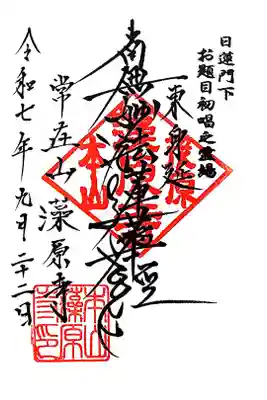 日蓮門下
お題目初唱之霊場
東身延
南無妙法蓮華經
常在山 藻原寺
令和七年九月二十二日
本山
藻原
寺印